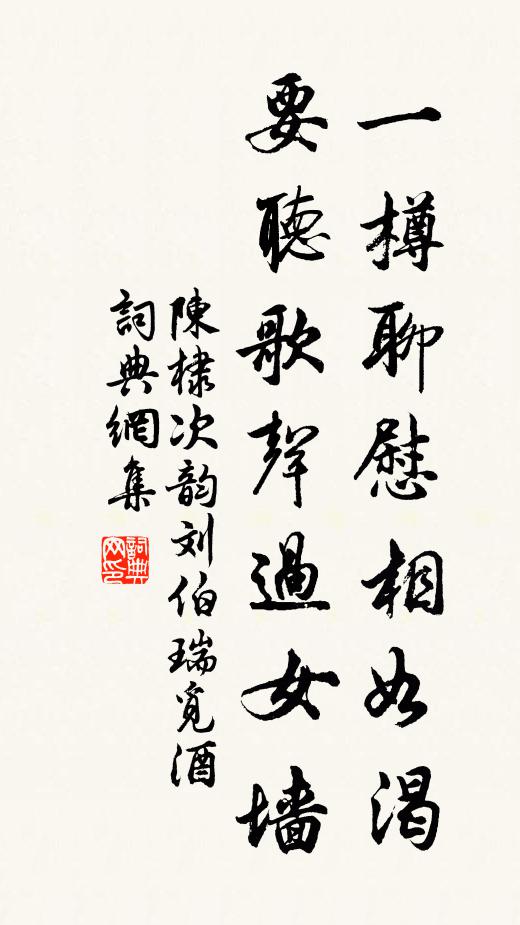 一樽聊慰相如渴
要聽歌聲過女墻
陳棣次韵刘伯瑞覓酒
詞典網集
詞典
网印